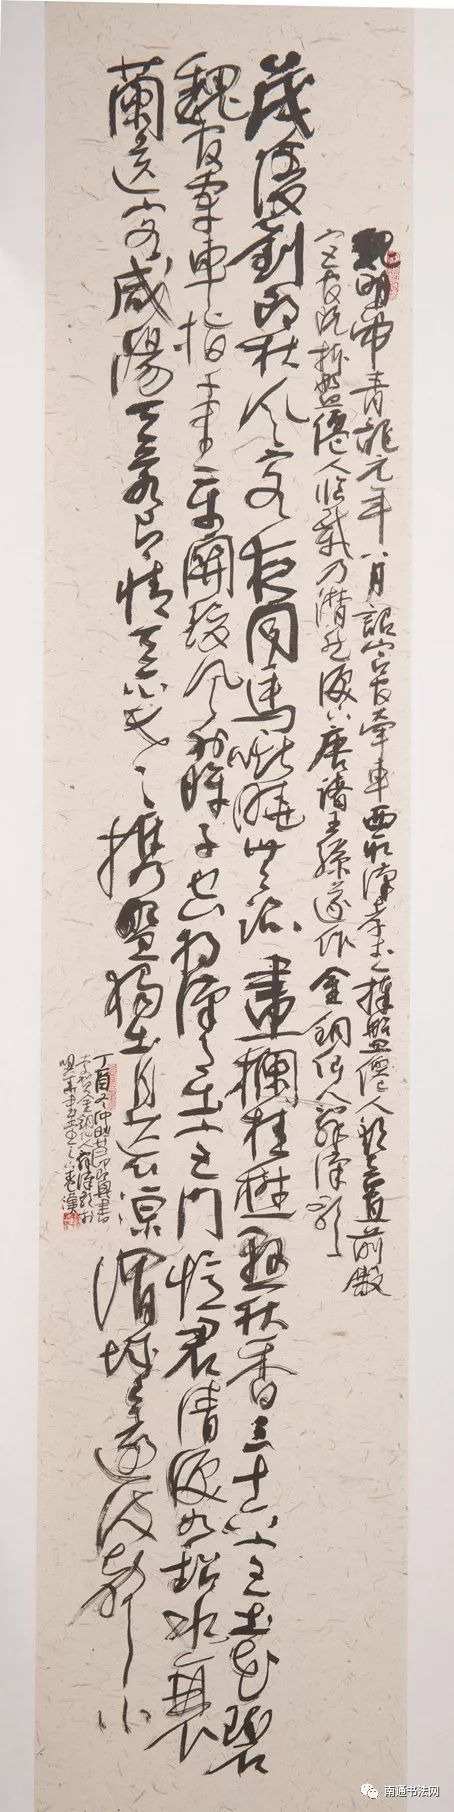 魏明帝青龍元年八月詔宮官牽車西取漢孝武捧盤僊人欲立置前殿
宮官既拆盤僊人臨載乃潸然淚下唐諸王孫遂作金銅仙人辭漢歌
茂陵劉郎秋風客夜聞馬嘶曉無跡畫欄桂樹懸秋香三十六宮土花碧
魏官牽車指千里東關酸風射眸子空將漢月出宮門憶君清淚如鉛水衰
蘭送客咸陽天若有情天亦老攜盤獨出月荒涼渭城已遠波聲小
丁酉冬仲書
李賀金銅仙人辭漢歌於
南通书法网